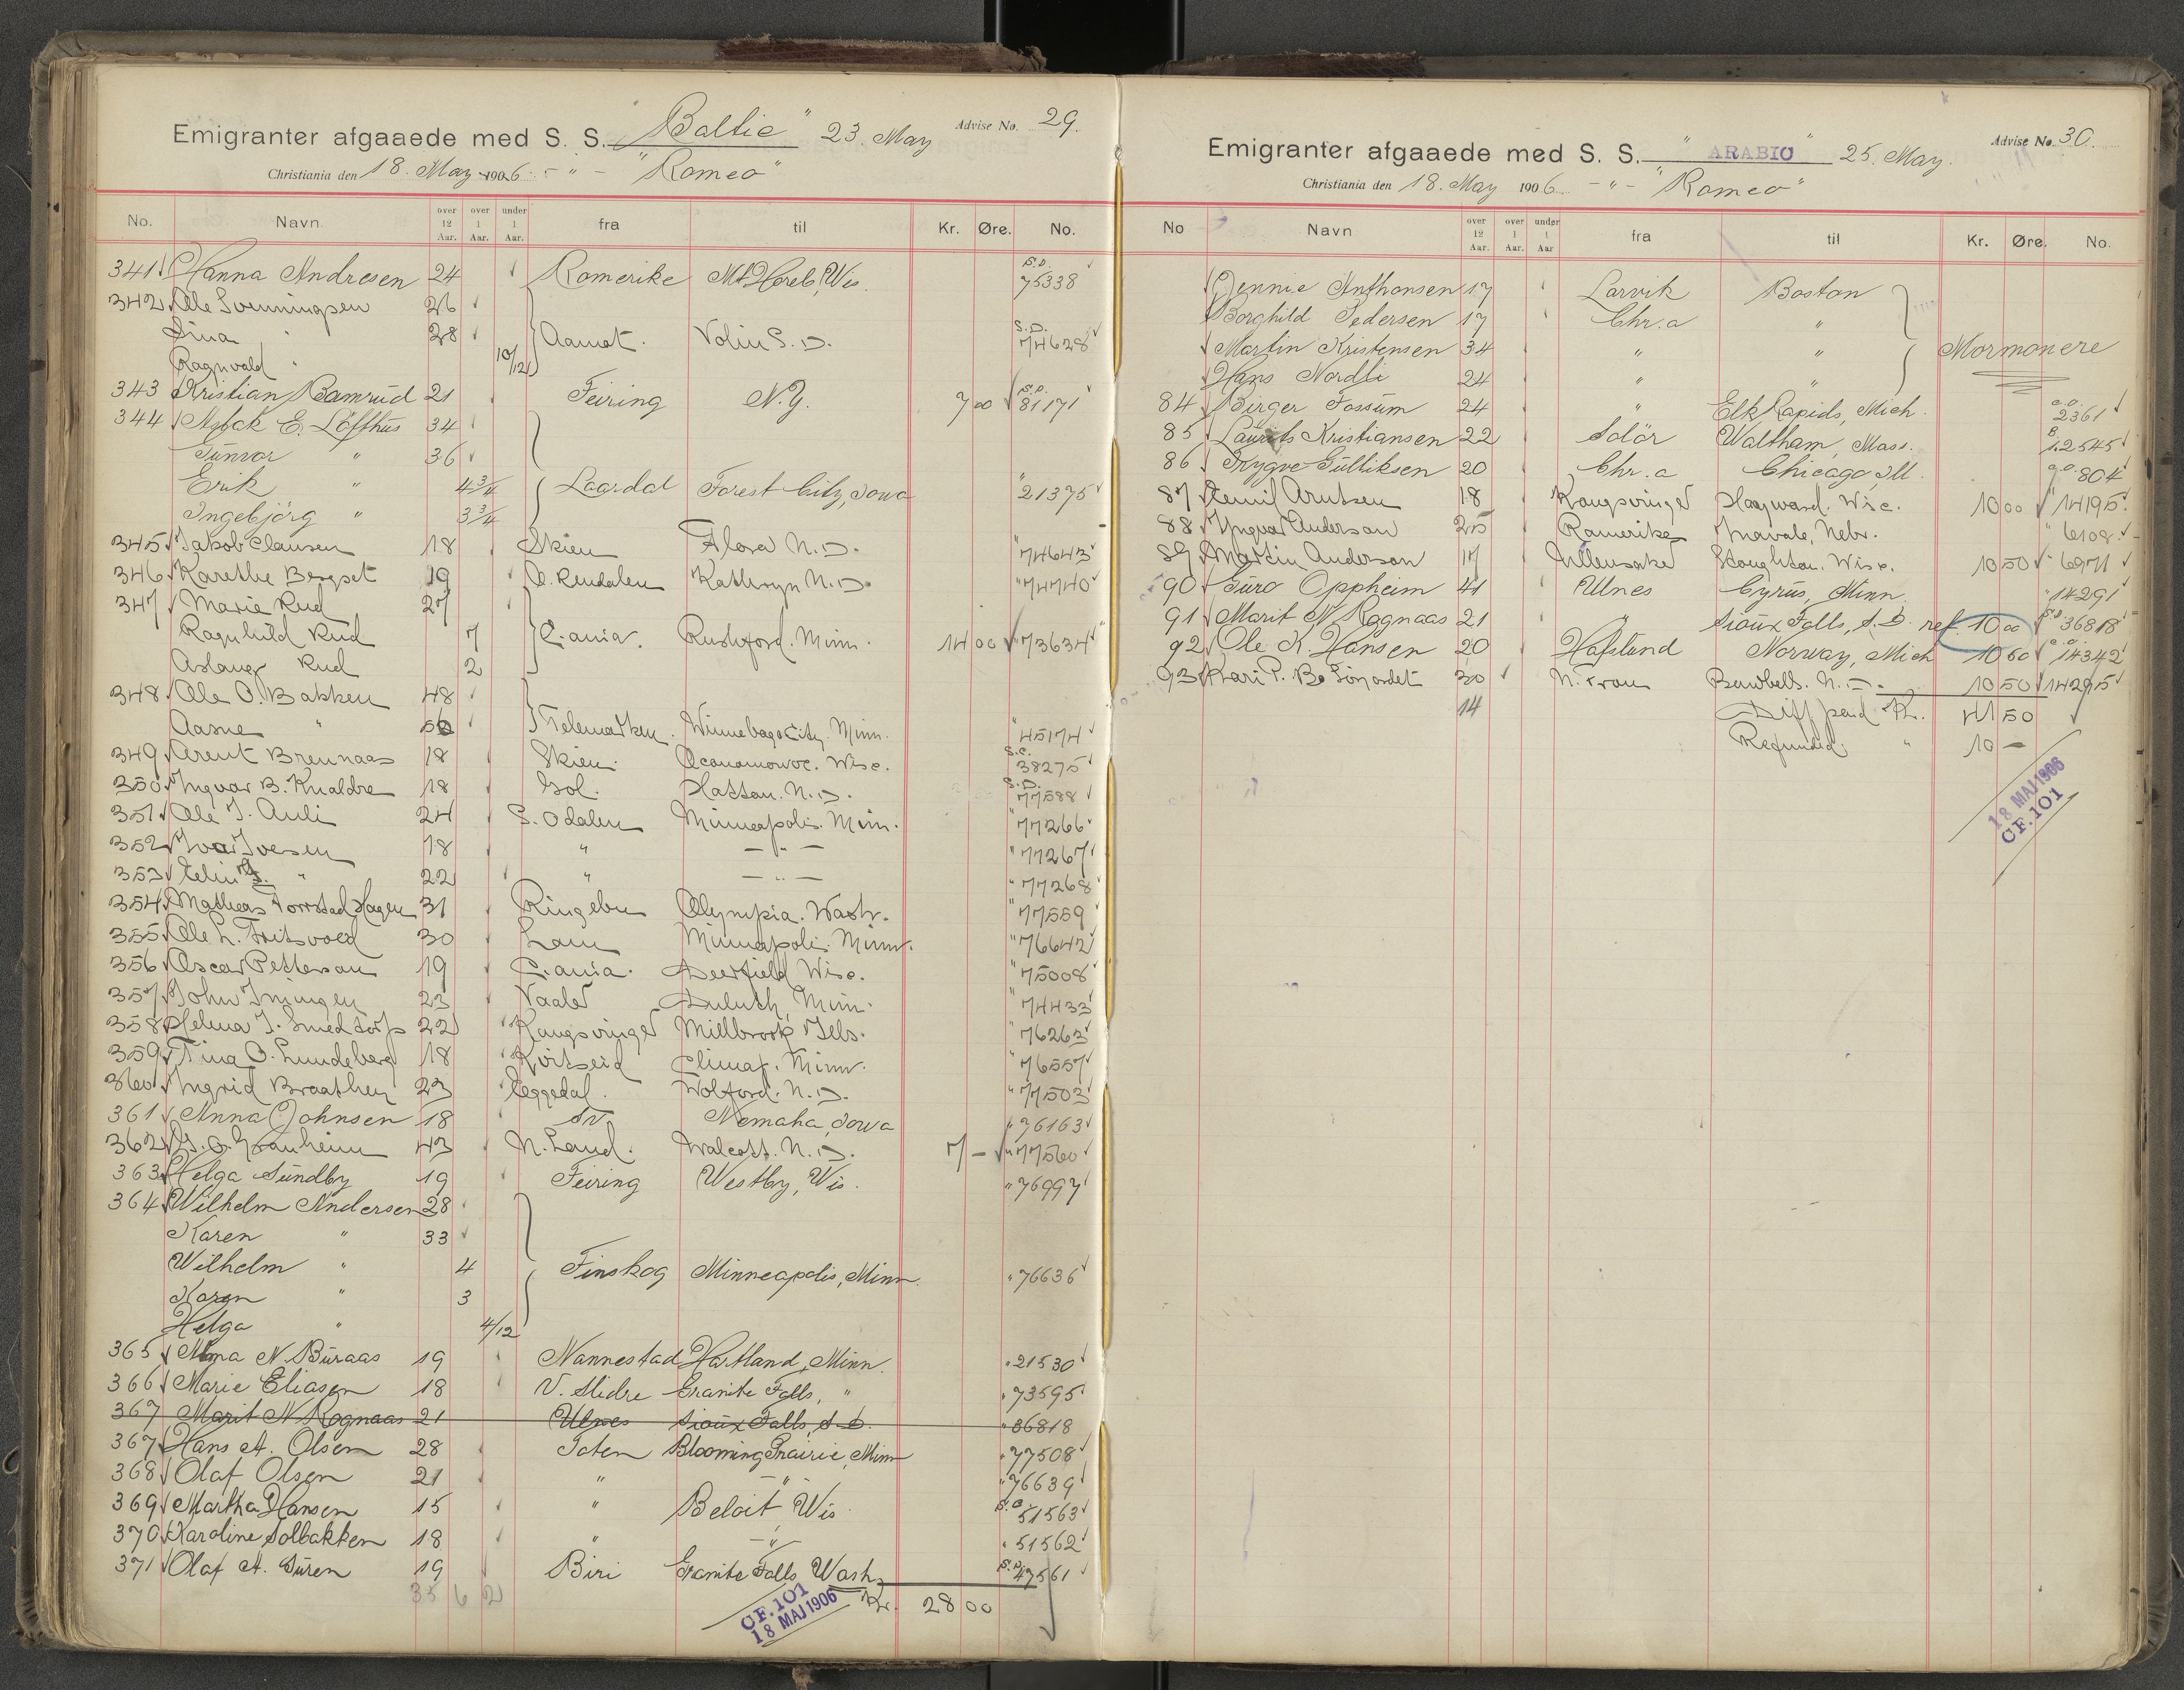 Emigranter afgaaede med S. S. "Baltic" 23. May Advise No. 29.
Christiania den 18. May 1906 - " - "Romeo"
No. Navn over 12 Aar. over 1 Aar. under 1 Aar. fra til Kr. Øre. No.
341 Hanna Andresen 24 Romerike Mt Horeb, Wis. S.D. 75338
342 Ole Svenningsen 26
Sina " 28 Aamot. Volin S. D. S.D. 74628
Ragnvald " 10/12
343 Kristian Ramrud 21 Feiring N.Y. 7 00 S.D. 81171
344 Aslak E. Lofthus 34
Gunvor " 36
Erik " 4 3/4 Laardal Forest City, Iowa " 21375
Ingebjörg " 3 3/4
345 Jakob Clausen 18 Skien Flora N. D. " 74643
346 Karethe Bergset 19 O. Rendalen Kathryn N. D. " 74740
347 Marie Rud 27
Ragnhild Rud 7 C.ania. Rushford. Minn. 14 00 " 73634
Aslaug Rud 2
348 Ole O. Bakken 48
Aasne " 50 Telemarken. Winnebago City. Minn. " 45174
349 Arent Brennaas 18 Skien. Oconomowoc. Wisc. S.C. 38275
350 Ingvar B. Knaldre 18 Gol. Hatton. N. D. S.D. 77588
351 Ole J. Auli 24 S. Odalen Minneapolis. Minn. " 77266
352 Ivar Ivesen 18 " - " - " 77267
353 Elin " 22 " - " - " 77268
354 Mathias Torrstad Hagen 31 Ringebu Olympia. Wash. " 77559
355 Ole L. Fritsvold 30 Lom Minneapolis. Minn. " 76642
356 Oscar Petterson 19 C.ania. Deerfield Wisc. " 75008
357 John Iningen 23 Vaaler Duluth, Minn. " 74433
358 Helena J. Smedtorp 22 Kongsvinger Millbrook Ills. " 76263
359 Tina O. Lundeberg 18 Kvitseid Climax. Minn. " 76557
360 Ingrid Braathen 23 Eggedal. Wolford. N. D. " 77503
361 Anna Johnsen 18 Nemaha, Iowa " 76163
362 G. O. Granheim 43 N. Land. Walcott. N. D. 7 - " 77560
363 Helga Sundby 19 Feiring Westby, Wis. " 76997
364 Wilhelm Andersen 28
Karen " 33
Wilhelm " 4 Finskog Minneapolis, Minn. " 76636
Karen " 3
Helga " 4/12
365 Alma N. Buraas 19 Nannestad Hartland, Minn. " 21530
366 Marie Eliasen 18 V. Slidre Granite Falls, " " 73595
367 Marit N Rognaas 21 Ulnes Sioux Falls, S. D. " 36818
367 Hans A. Olsen 28 Toten Blooming Prairie, Minn " 77508
368 Olaf Olsen 21 " - " - " 76639
369 Martha Hansen 15 " Beloit, Wis. S.C. 51563
370 Karoline Solbakken 18 " - " - " 51562
371 Olaf A. Turen 19 Biri Granite Falls Wash. S.D. 47561
35 6 2 Kr. 28 00
CF. 101
18 MAJ 1906
Emigranter afgaaede med S. S. "ARABIC" 25. May. Advise No. 30.
Christiania den 18. May 1906 - " - "Romeo"
No Navn over 12 Aar. over 1 Aar. under 1 Aar fra til Kr. Øre. No.
Jennie Anthonsen 17 Larvik Boston
Borghild Pedersen 17 Chr.a "
Martin Kristensen 34 " " Mormonere
Hans Nordli 24 " "
84 Birger Fossum 24 " Elk Rapids, Mich. 2361
85 Laurits Kristiansen 22 Solör Waltham, Mass. B. 12545
86 Trygve Gulliksen 20 Chr.a Chicago, Ill. 804
87 Emil Arntsen 18 Kongsvinger Hayward. Wisc. 10 00 " 14195
88 Yngvar Anderson 25 Romerike Inavale, Nebr. " 6108
89 Martin Anderson 17 Ullensaker Stoughton. Wisc. 10 50 " 6971
90 Guro Oppheim 41 Ulnes Cyrus, Minn. " 14291
91 Marit N Rognaas 21 " Sioux Falls, S. D. ref. 10 00 S.D. 36818
92 Ole K. Hansen 20 Hafslund Norway, Mich 10 50 14342
93 Kari P. Bø 30 N. Fron Bowbells. N. D. 10 50 14295
14 Diff paid Kr. 41 50
Refunded. " 10 -
18 MAJ 1906
CF. 101